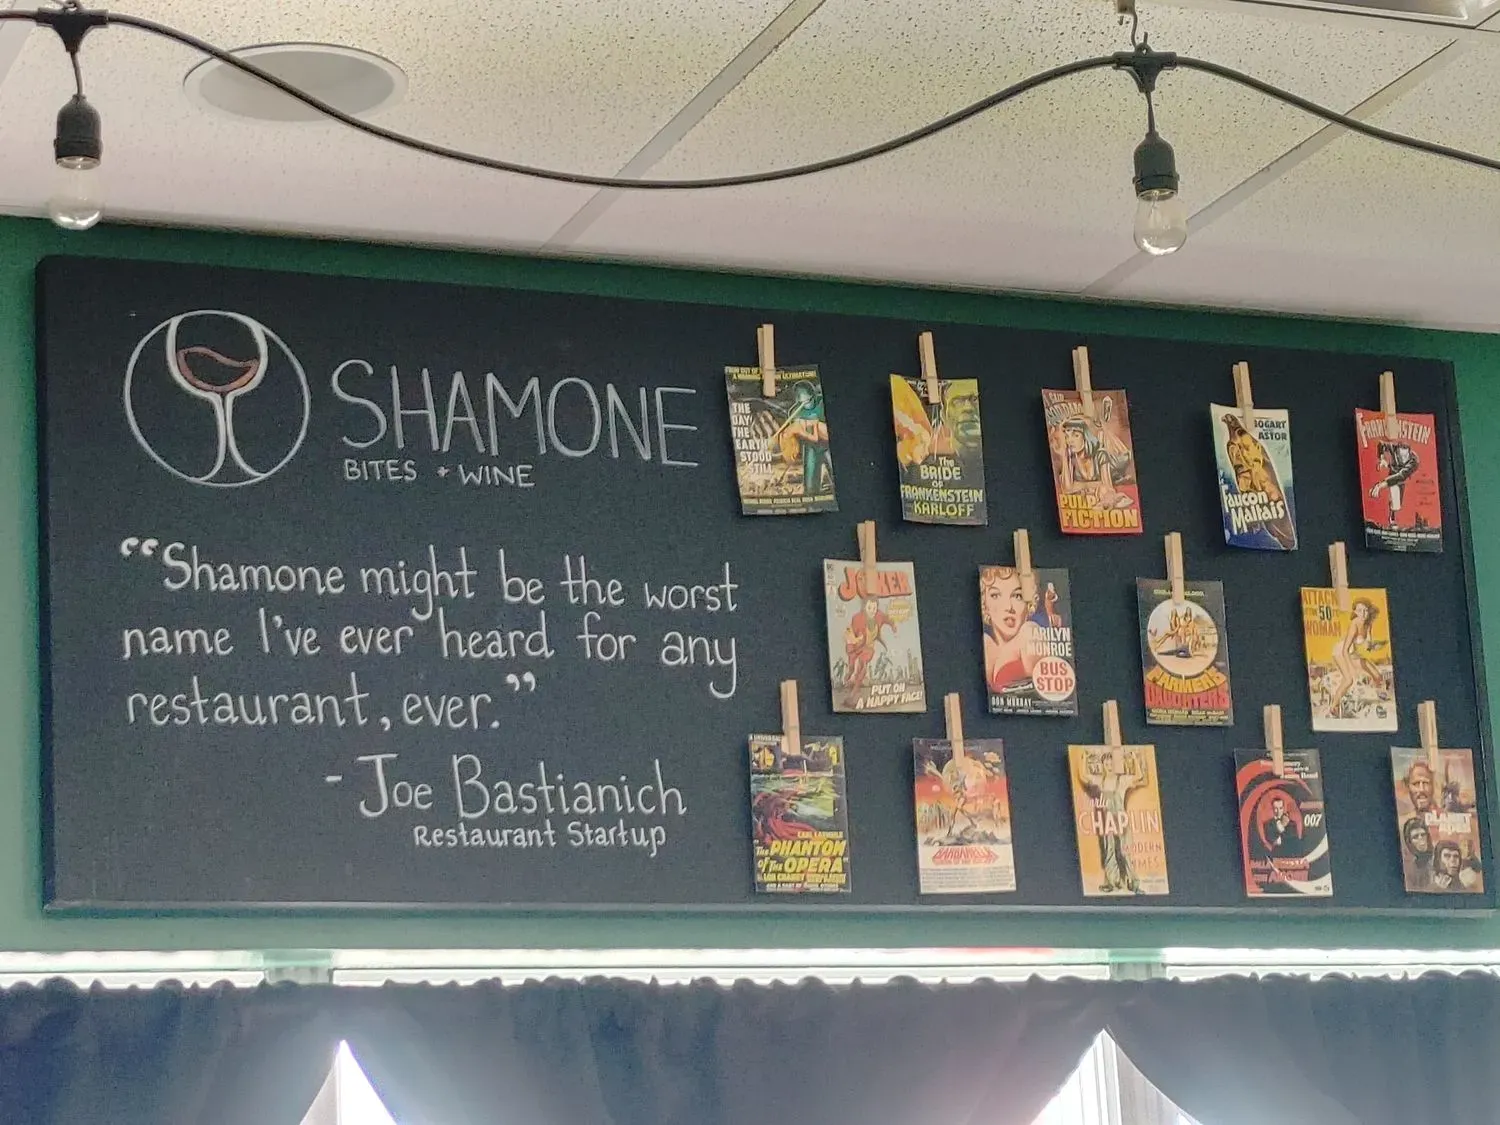 SHAMONE
BITES + WINE
"Shamone might be the worst
name I've ever heard for any
restaurant, ever."
- Joe Bastianich
Restaurant Startup
THE
DAY
THE
EARTH
STOOD
STILL
The
BRIDE
OF
FRANKENSTEIN
KARLOFF
PULP
FICTION
BOGART
ASTOR
Faucon
Maltais
JOKER
PUT ON
A HAPPY FACE!
MARILYN
MONROE
BUS
STOP
DON MURRAY
FARMER'S
DAUGHTERS
ATTACK
50
WOMAN
CARL LAEMMLE
"The PHANTOM
of The OPERA"
LON CHANEY
BARBARELLA
CHAPLIN
MODERN
TIMES
007
PLANET
APES